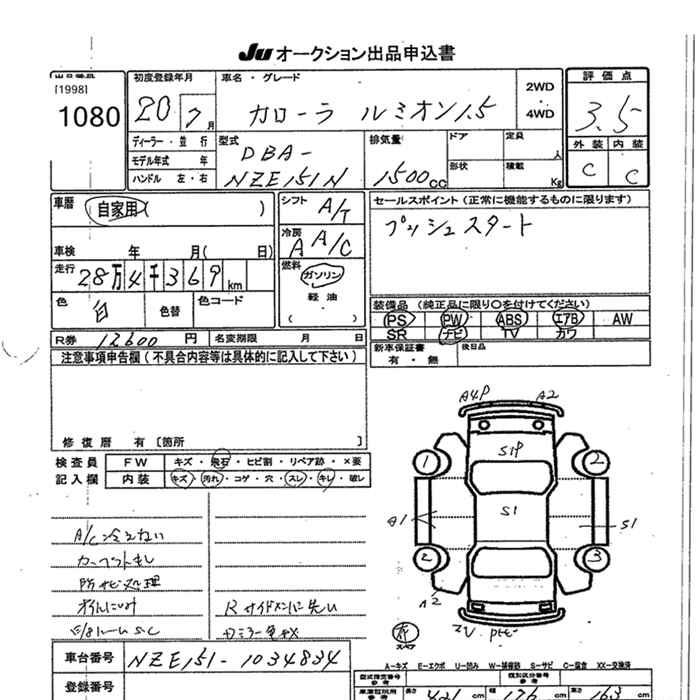 JU オークション出品申込書
出品番号
[1998]
1080
初度登録年月
20 7 月
車名・グレード
カローラ ルミオン 1.5
2WD
・
4WD
評価点
3.5
外装 内装
C C
ディーラー・並行
モデル年式 年
ハンドル 左・右
型式
DBA-
NZE151N
排気量
1500cc
ドア
形状
定員
人
積載
Kg
車歴
自家用( )
車検 年 月( 日)
走行
28万4千369km
色
白
色替
色コード
シフト
A/T
冷房
A A/C
燃料
ガソリン
軽油
( )
セールスポイント(正常に機能するものに限ります)
プッシュスタート
装備品(純正品に限り○を付けてください)
PS PW ABS エアB AW
SR ナビ TV カワ
R券 12600 円
名変期限 月 日
新車保証書
有・無
後日品
注意事項申告欄(不具合内容等は具体的に記入して下さい)
修復歴 有 [箇所 ]
検査員
記入欄
FW キズ・飛石・ヒビ割・リペア跡・×要
内装 キズ・汚れ・コゲ・穴・スレ・キレ・破レ
A/C冷えない
カーペットよし
防サビ処理
オイルにじみ
Rサイドメンバー先
A4P A2
S1P
1 2
S1
A1 S1
2 3
A2
スペア
A-キズ E-エクボ U-凹み W-補修跡 S-サビ C-腐食 XX-交換済
車台番号
NZE151-1034834
登録番号
型式指定番号
参考
類別区分番号
参考
長さ 幅 高さ
163 cm